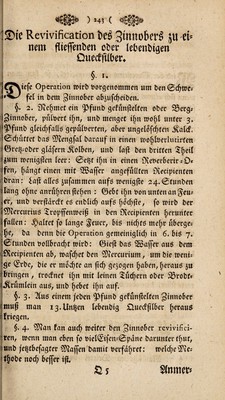 ) 245 (
Die Revivification des Zinnobers zu ei-
nem fliessenden oder lebendigen
Quecksilber.
§. 1.
Diese Operation wird vorgenommen um den Schwe-
fel in dem Zinnober abzuscheiden.
§. 2. Nehmet ein Pfund gekünstelten oder Berg-
Zinnober, pülvert ihn, und menget ihn wohl unter 3.
Pfund gleichfalls gepülverten, aber ungelöschten Kalck.
Schüttet das Mengsal darauf in einen wohlverlutirten
oder gläsern Kolben, und last den dritten Theil
zum wenigsten leer: Setzt ihn in einen Reverberir-O-
fen, hängt einen mit Wasser angefüllten Recipienten
dran: last alles zusammen aufs wenigste 24. Stunden
lang ohne anrühren stehen: Gebt ihm von unten an Feu-
er, und verstärckt es endlich aufs höchste, so wird der
Mercurius Tropffenweiß in den Recipienten herunter
fallen: Haltet so lange Feuer, bis nichts mehr überge-
he, da denn die Operation gemeiniglich in 6. bis 7.
Stunden vollbracht wird: Gießt das Wasser aus dem
Recipienten ab, waschet den Mercurium, um die weni-
ge Erde, die er möchte an sich gezogen haben, heraus zu
bringen, trocknet ihn mit leinen Tüchern oder Brodt-
Krümlein aus, und hebet ihn auf.
§. 3. Aus einem jeden Pfund gekünstelten Zinnober
muß man 13. Untzen lebendig Quecksilber heraus
kriegen.
§. 4. Man kan auch weiter den Zinnober revivifici-
ren, wenn man eben so viel Eisen-Späne darunter thut,
und jetztbesagter Massen damit verfähret: welche Me-
thode noch besser ist.
Q 5 Anmer-